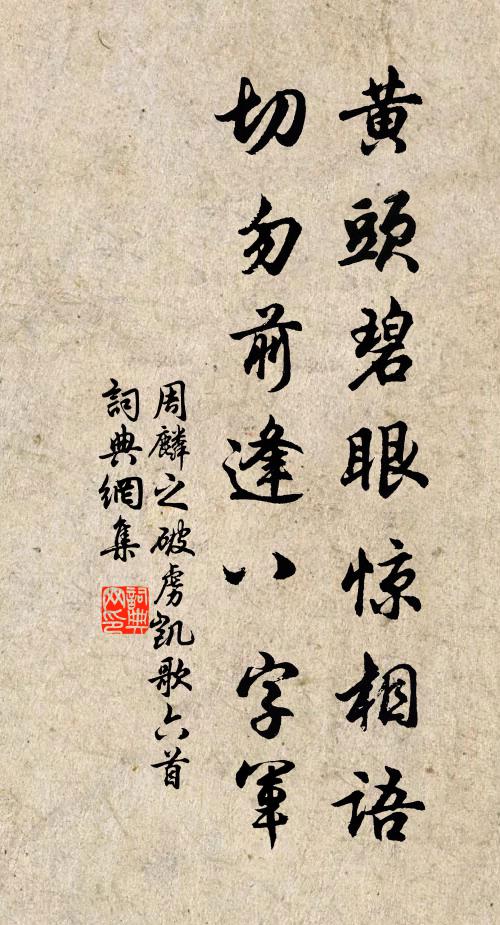 黄頭碧眼惊相語
切勿前逢八字軍
周麟之破虏凱歌六首
詞典網集
詞典
网印